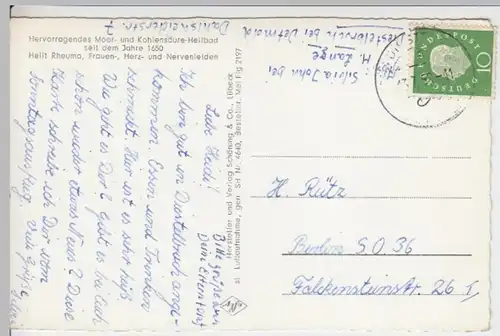 Hervorragendes Moor- und Kohlensäure-Heilbad
seit dem Jahre 1650
Heilt Rheuma, Frauen-, Herz- und Nervenleiden
Dahlsheiderstr. 7
Abs.: Silvia John bei
H. Lange
Diestelbruch bei Detmold
Liebe Heidi!
Ich bin gut in Diestelbruch ange-
kommen. Essen und Trinken
schmeckt. Hier ist es sehr heiß.
Wie geht es Dir? gibt es bei Euch
schon wieder etwas Neues? Diese
Karte schreibe ich Dir vom
Sonntagsausflug. Viele Grüße
Bitte grüße auch
Deine Eltern
Hersteller und Verlag Schöning & Co., Lübeck
sl. Luftaufnahme, gen. SH Nr. 4640, Bestellnr. Mei Fig 2197
DEUTSCHE BUNDESPOST
10
H. Rütz
Berlin S.O. 36
Falckensteinstr. 26 I